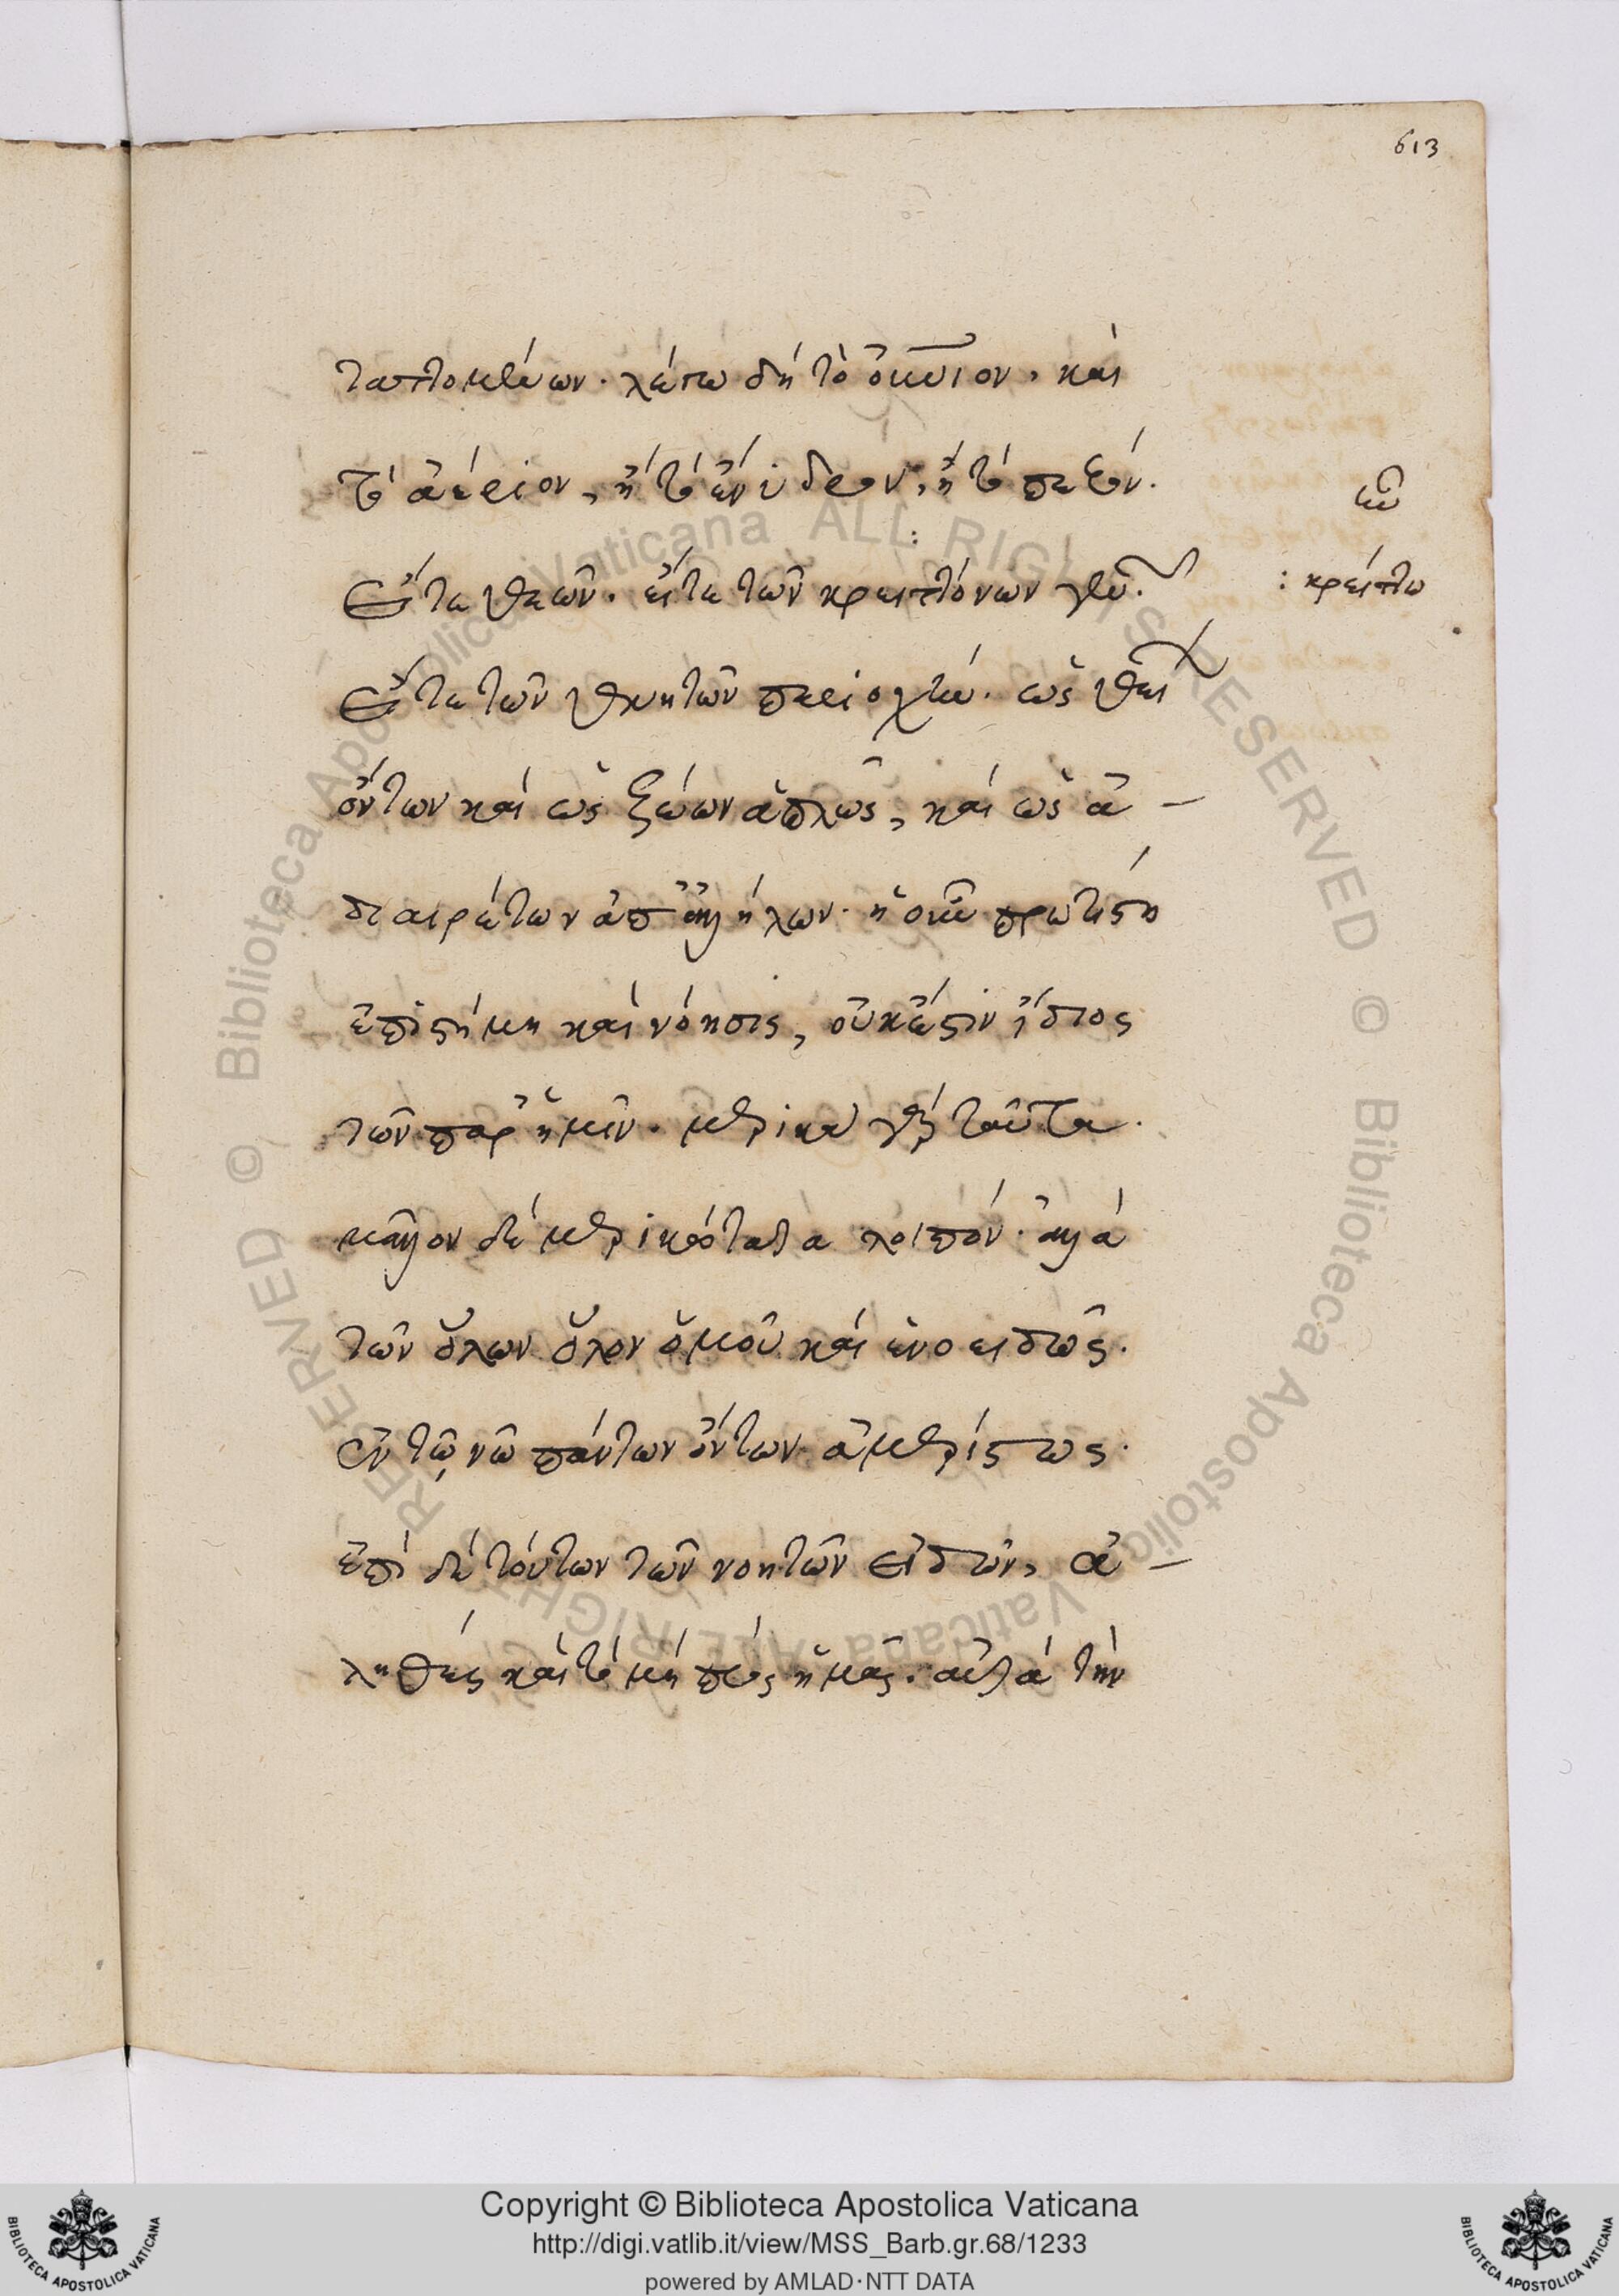 613
ταττομένων. λέγω δὴ τὸ οὐράνιον, καὶ
τὸ ἀέριον, ἢ τὸ ἔνυδρον, ἢ τὸ πεζόν.
εἴτε θεῶν. εἴτε τῶν κρειττόνων
: κρείττω
εἴτε τῶν θνητῶν περιοχὴν. ὡς
ὄντων καὶ ὡς ζώων ἁπλῶς, καὶ ὡς ἀ-
διαιρέτων ἀπ' ἀλλήλων. ἡ οὖν πρωτίστη
ἐπιστήμη καὶ νόησις, οὐκ ἔστιν εἴδους
τῶν παρ' ἡμῖν. μερικὰ γὰρ ταῦτα.
μᾶλλον δὲ μερικώτατα λοιπόν. ἀλλὰ
τῶν ὅλων ὅλον ὁμοῦ καὶ ἑνοειδῶς.
ἐν τῷ νῶ πάντων ὄντων ἀμερίστως.
ἐπὶ δὲ τούτων τῶν νοητῶν εἰδῶν, ἀ-
ληθὲς καὶ τὸ μὴ πρὸς ἡμᾶς. ἀλλὰ τὴν
Copyright © Biblioteca Apostolica Vaticana
http://digi.vatlib.it/view/MSS_Barb.gr.68/1233
powered by AMLAD·NTT DATA
BIBLIOTECA APOSTOLICA VATICANA
BIBLIOTECA APOSTOLICA VATICANA
© Biblioteca Apostolica Vaticana ALL RIGHTS RESERVED
© Biblioteca Apostolica Vaticana ALL RIGHTS RESERVED